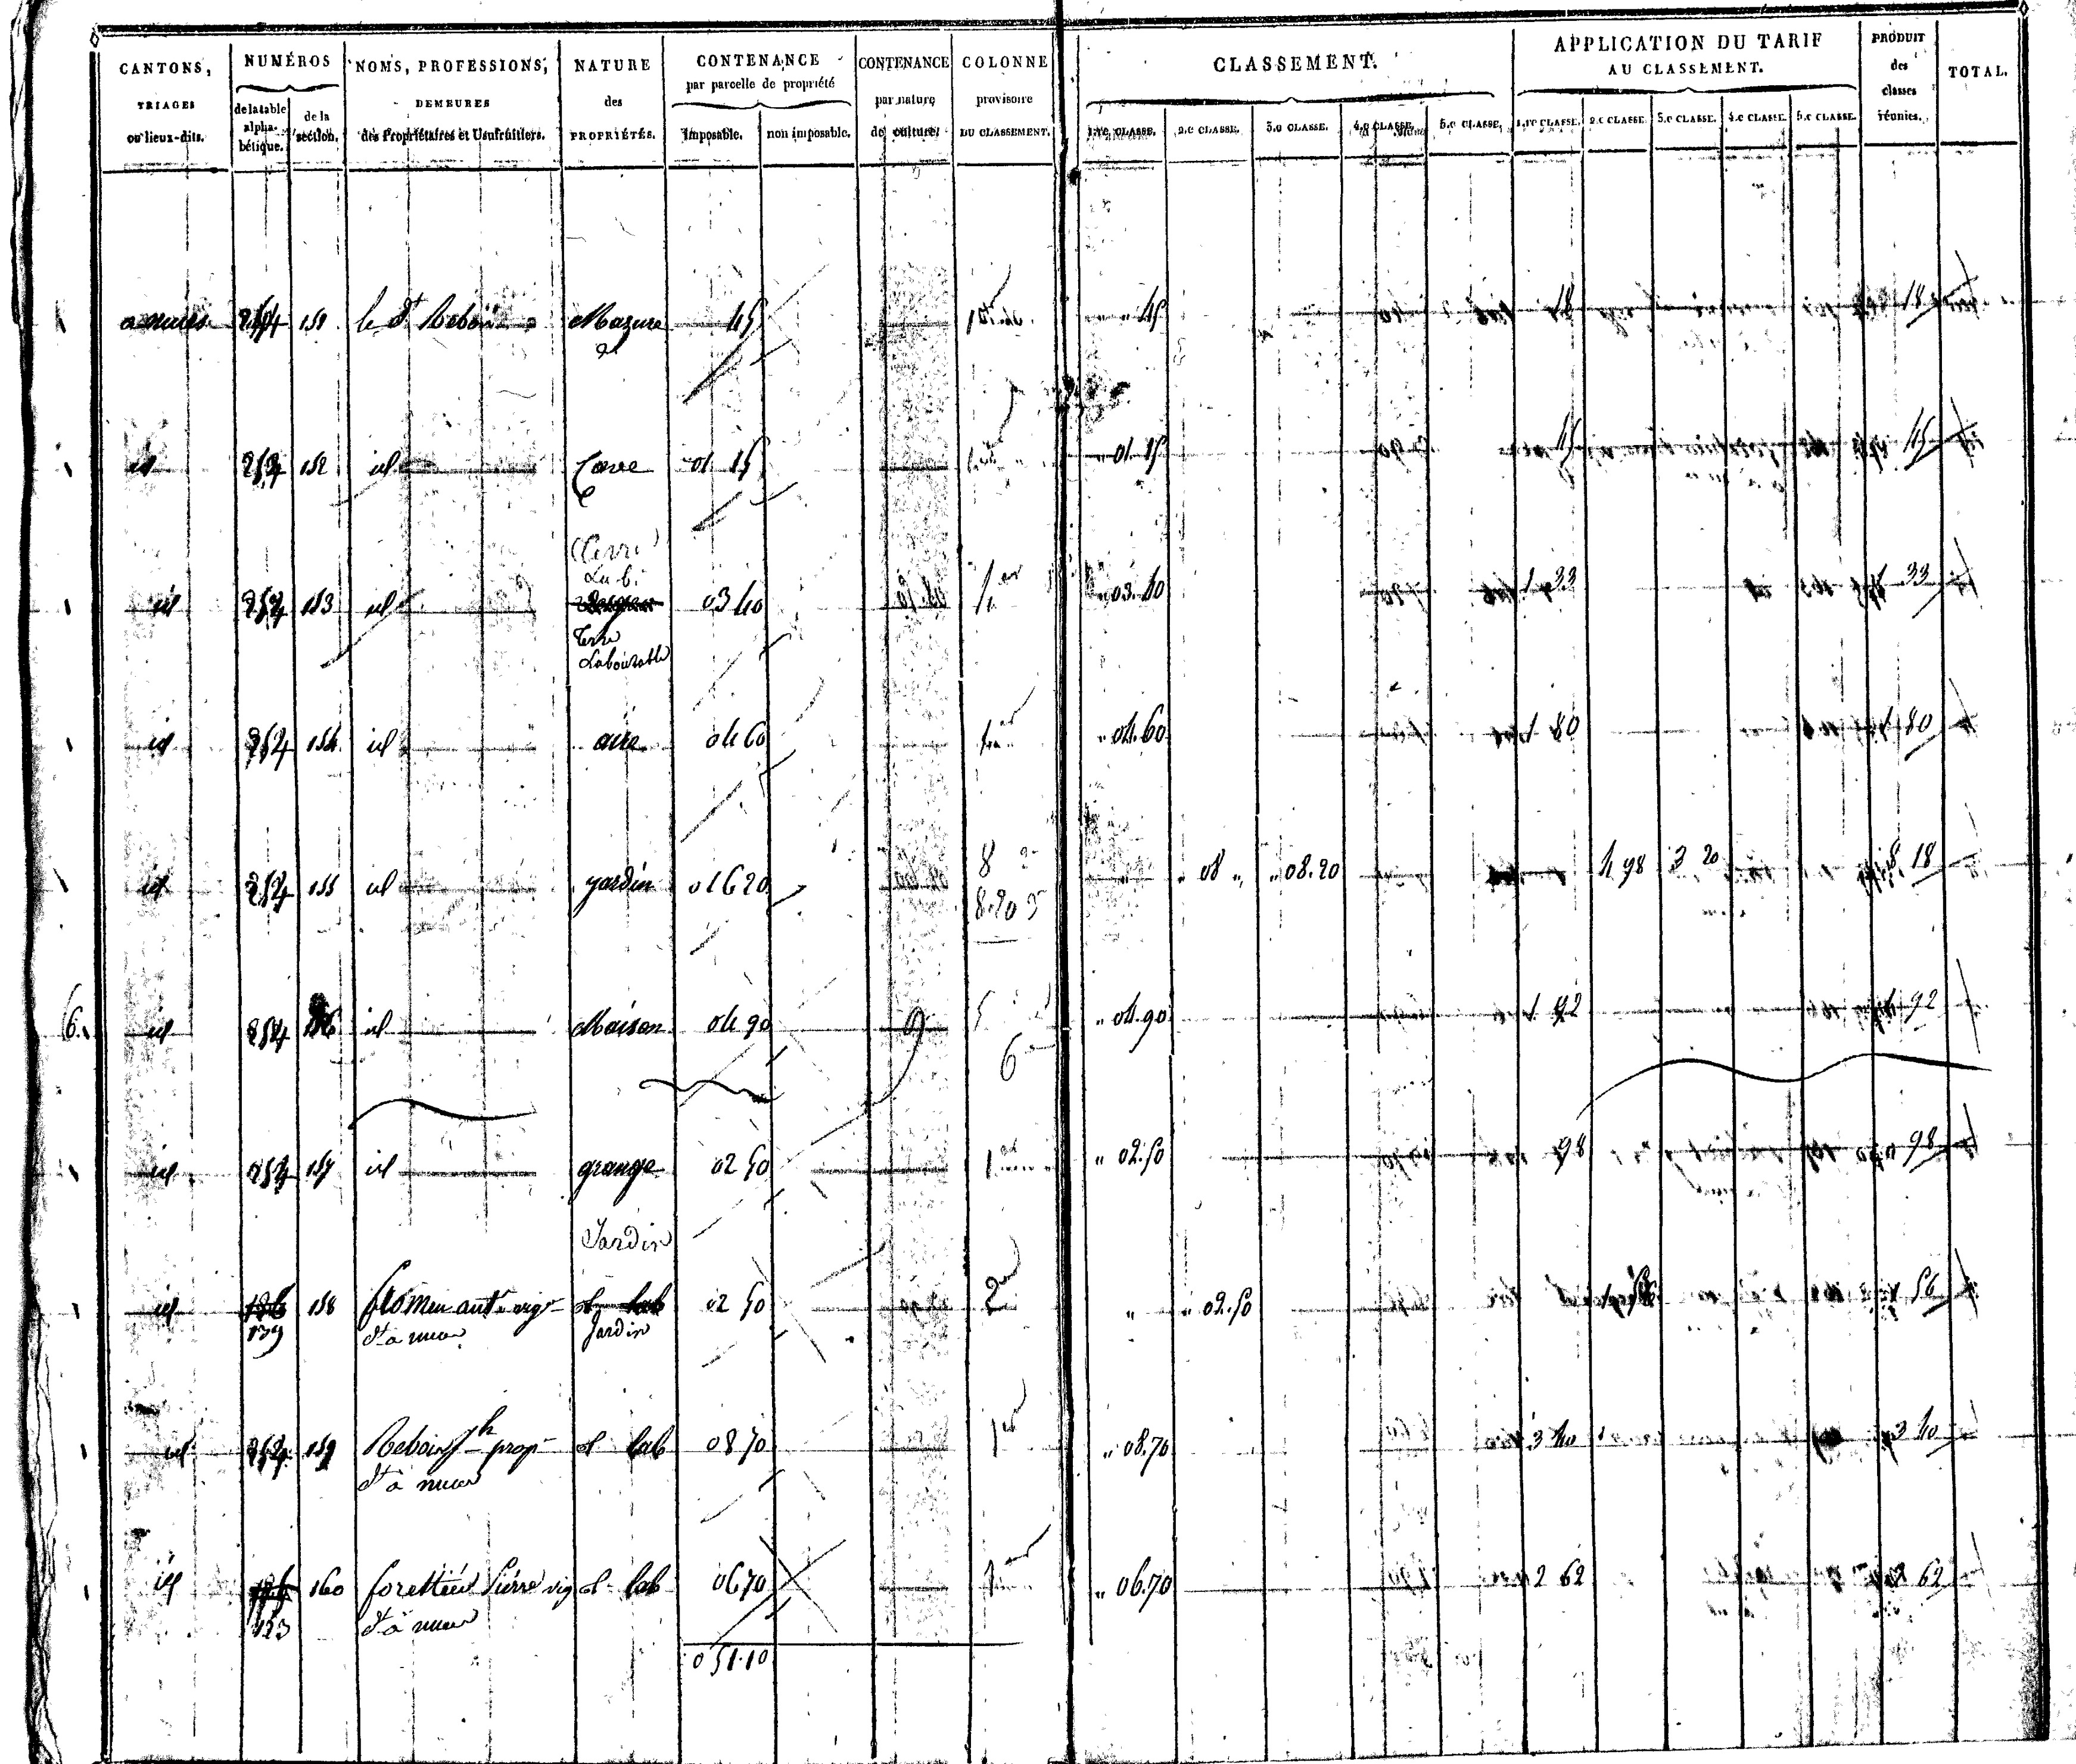 CANTONS, TRIAGES ou lieux-dits. NUMÉROS de la table alphabétique. de la section. NOMS, PROFESSIONS, DEMEURES des Propriétaires et Usufruitiers. NATURE des PROPRIÉTÉS. CONTENANCE par parcelle de propriété Imposable. non imposable. CONTENANCE par nature de culture. COLONNE provisoire DU CLASSEMENT. CLASSEMENT. 1.re CLASSE. 2.e CLASSE. 3.e CLASSE. 4.e CLASSE. 5.e CLASSE. APPLICATION DU TARIF AU CLASSEMENT. 1.re CLASSE. 2.e CLASSE. 3.e CLASSE. 4.e CLASSE. 5.e CLASSE. PRODUIT des classes réunies. TOTAL.
a mures 254 151 le dt Reboin Mazure 45 " " 45 18 18
id 254 152 id Cave 01 15 " 01 15 45 45
Terre
Lab.
id 254 153 id 03 40 1er " 03.40 1 33 1 33
Terre
Labourable
id 254 154 id aire 04 60 1er " 04.60 1 80 1 80
id 254 155 id jardin 016 20 8 2 " " 08 " " 08.20 4 98 3 20 8 18
8.20 3
6. id 254 156 id Maison 04 90 " 04.90 1 92 1 92
6
id 254 157 id grange 02 50 1er " 02.50 98 98
Jardin
id 158 ant vig t lab 02 50 2 " " 02.50 1 56 1 56
139 dt a mures Jardin
id 254 159 Reboin Jh prop t lab 08 70 1er " 08.70 3 40 3 40
dt à mures
id 160 Pierre vig t lab 06 70 1er " 06.70 2 62 2 62
123 dt à mures
0 51.10